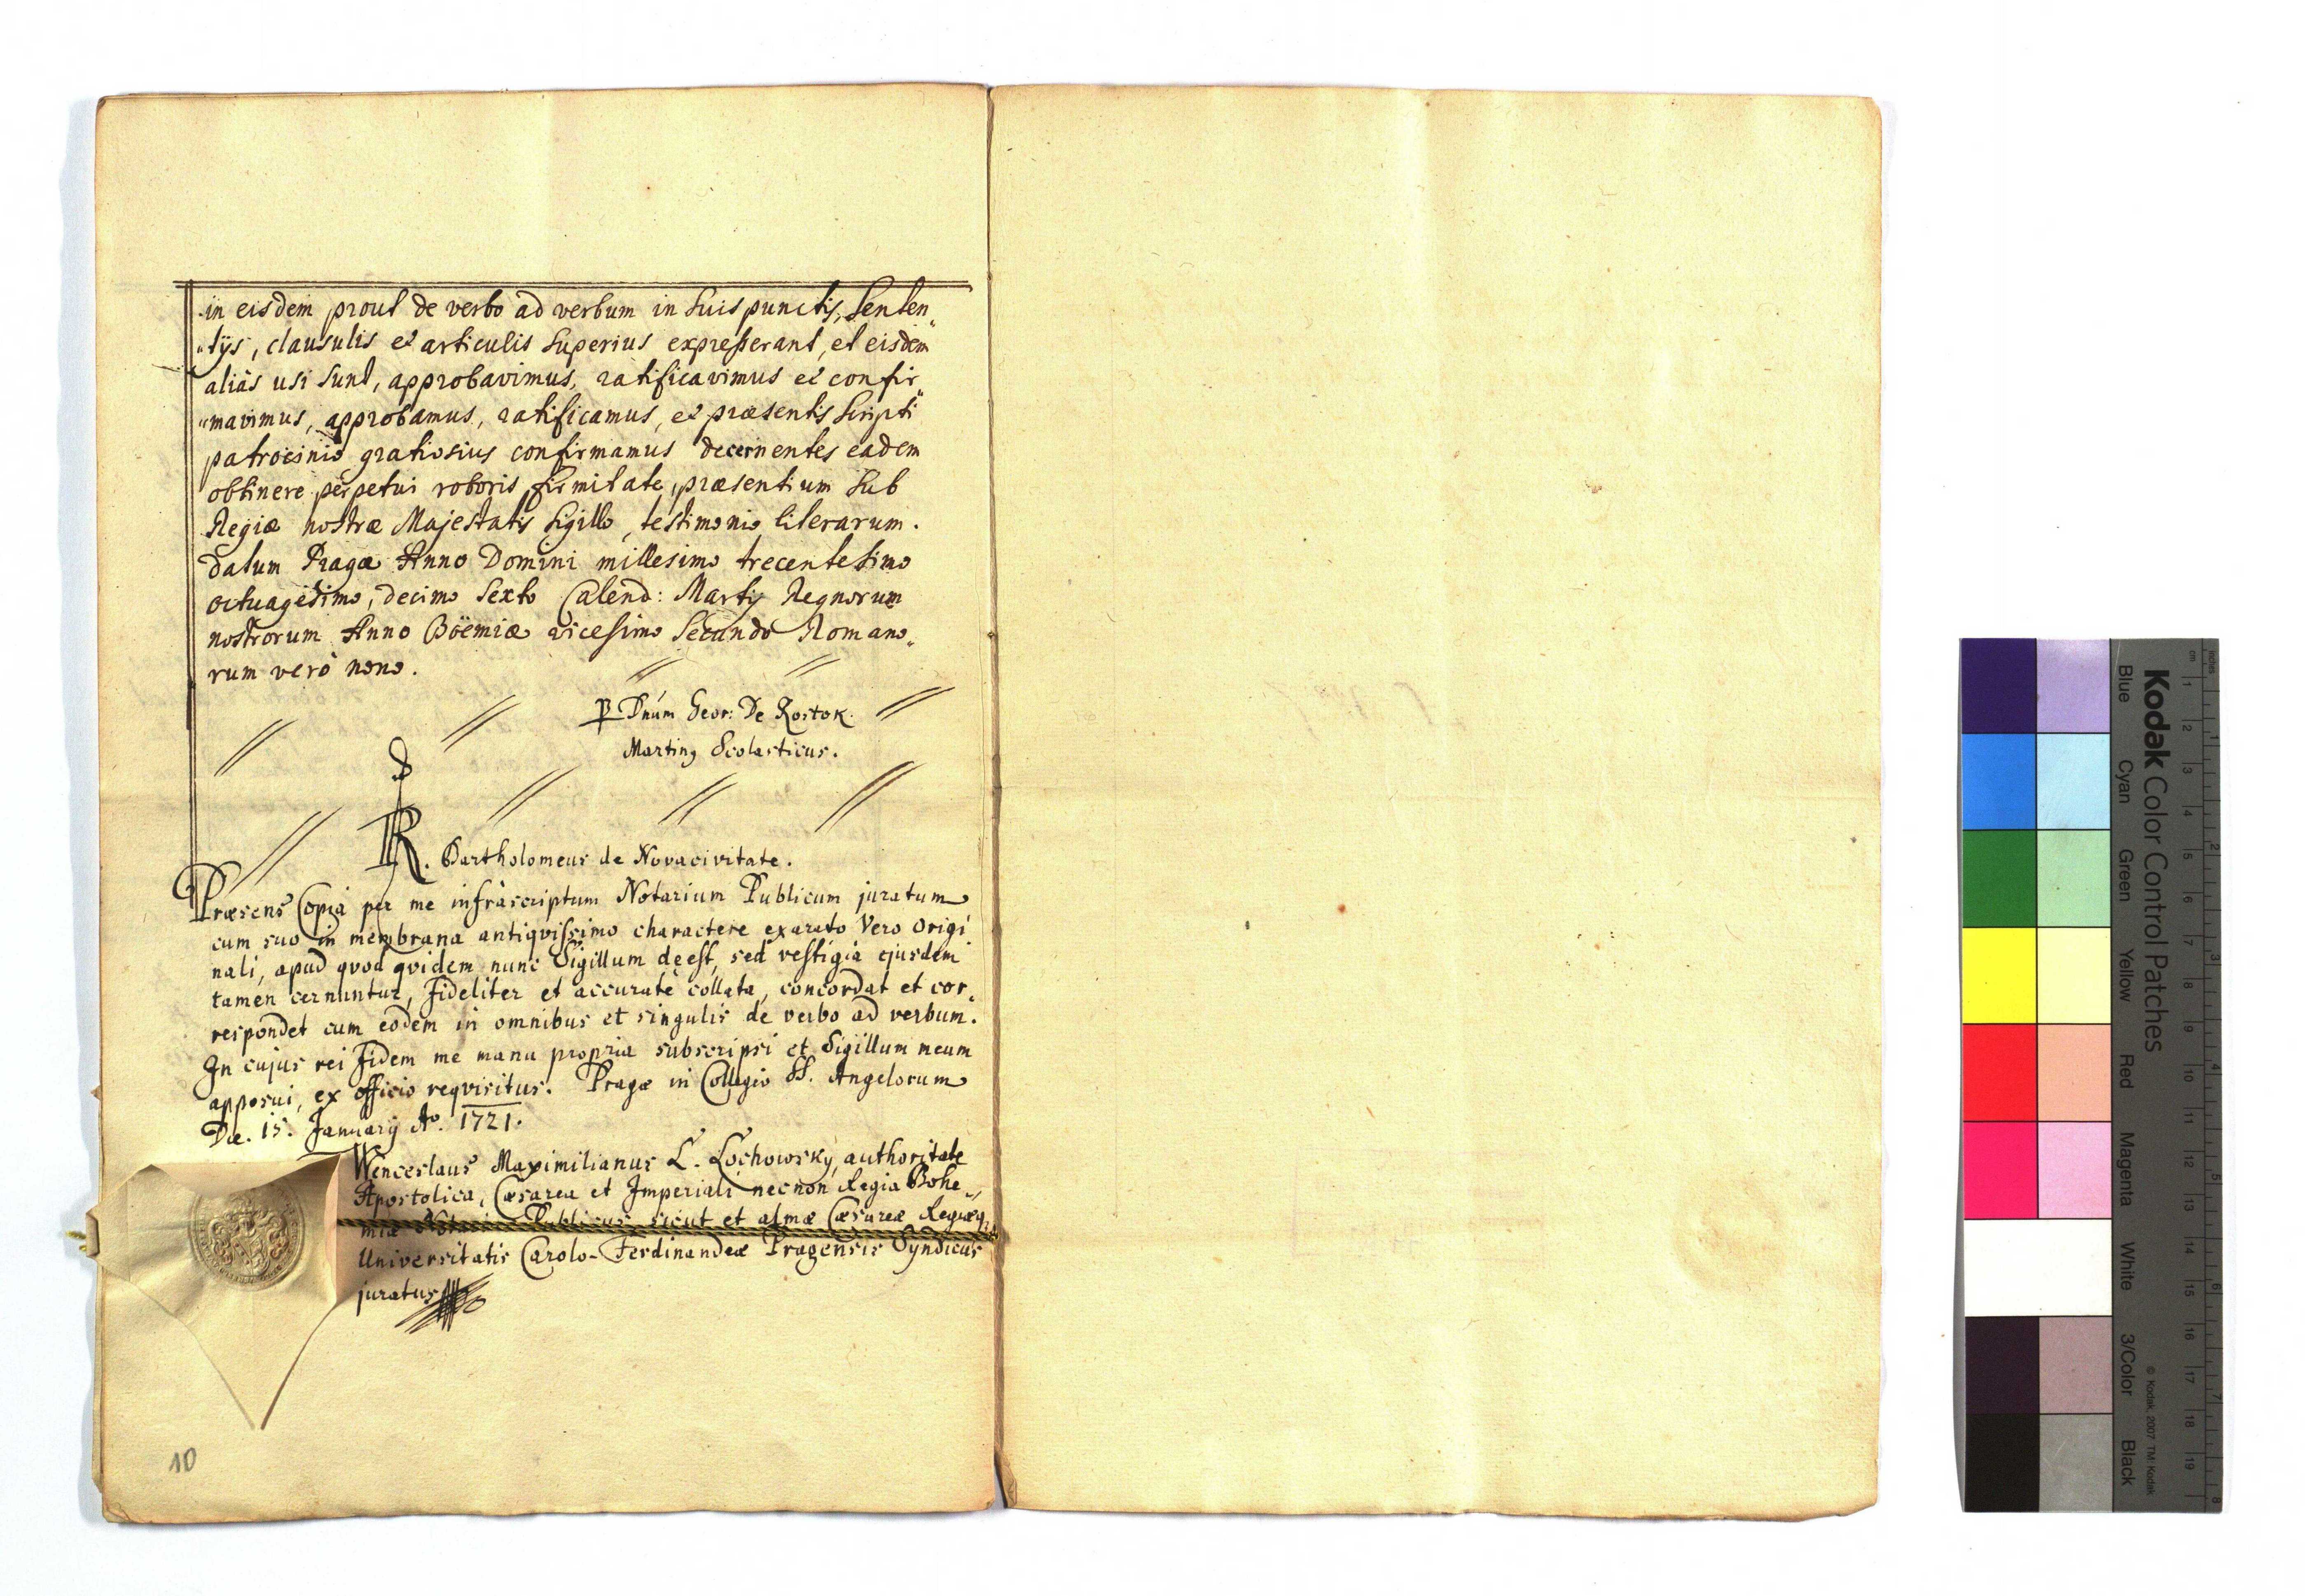 in eisdem prout de verbo ad verbum in suis punctis, senten„
„tijs, clausulis et articulis superius expresserant, et eisdem
aliàs usi sunt, approbavimus, ratificavimus et confir„
„mavimus, approbamus, ratificamus, et præsentis scripti
patrocinio gratiosius confirmamus decernentes eadem
obtinere perpetui roboris firmitate, præsentium sub
Regiæ nostræ Majestatis sigillo, testimonio literarum.
datum Pragæ Anno Domini millesimo trecentesimo
octuagesimo, decimo sexto Calend: Martij Regnorum
nostrorum Anno Boëmiæ vicesimo secundo Romano„
rum verò nono.
P Dnúm Geor: De Rostok.
Martinȝ Scolasticus.
R. Bartholomeus de Novacivitate.
Præsens Copia per me infràscriptum Notarium Publicum juratum
cum suo in membrana antiqvissimo charactere exarato Vero origi
nali, apud qvod qvidem nunc Sigillum deest, sed vestigia ejusdem
tamen cernuntur, fideliter et accuratè collata, concordat et cor„
respondet cum eodem in omnibus et singulis de verbo ad verbum.
In cujus rei fidem me manu propria subscripsi et Sigillum meum
apposui, ex officio reqvisitus. Pragæ in Collegio SS. Angelorum
Die. 15. Januarij Aº. 1721.
Wenceslaus Maximilianus L. Lochowsky, authoritate
Apostolica, Cæsarea et Imperiali necnon Regia Bohe„
miæ Publicus sicut et almæ Cæsareæ Regiæq;
Universitatis Carolo-Ferdinandeæ Pragensis Syndicus
juratus
10
Kodak Color Control Patches
Blue Cyan Green Yellow Red Magenta White 3/Color Black
© Kodak, 2007 TM: Kodak
cm 1 2 3 4 5 6 7 8 9 10 11 12 13 14 15 16 17 18 19
inches 1 2 3 4 5 6 7 8